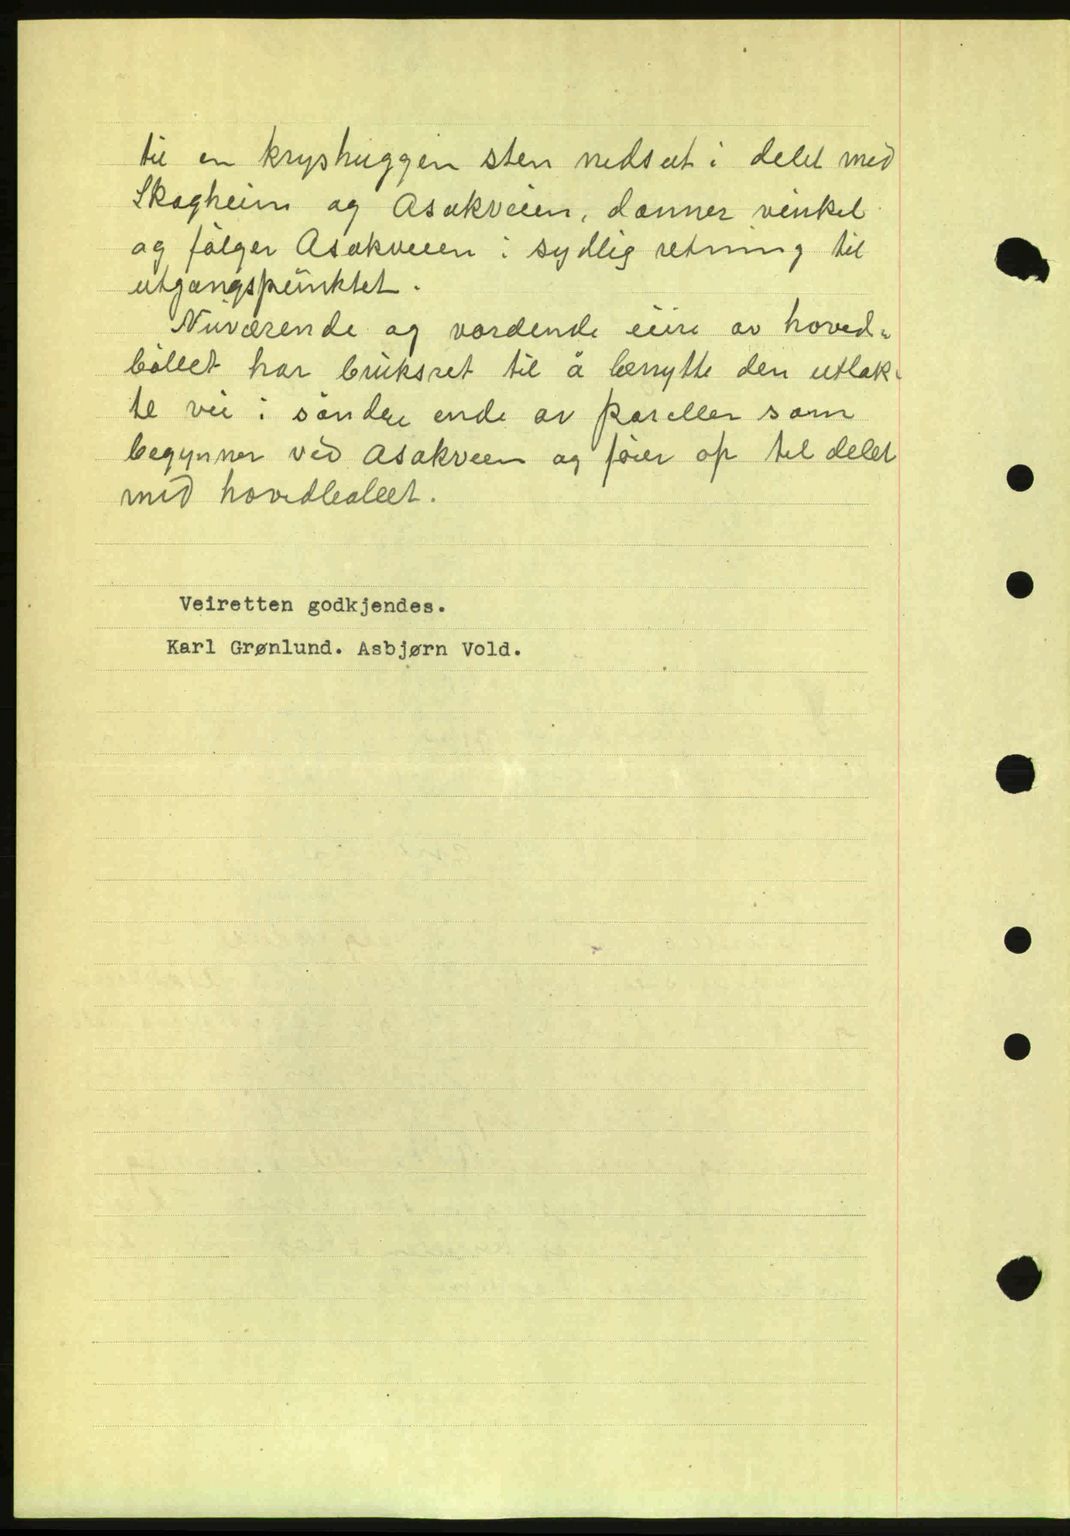 til en kryshuggen sten nedsat i delet med
Skogheim og Asakveien, danner vinkel
og følger Asakveien i sydlig retning til
utgangspunktet.
Nuværende og vordende eiere av hoved-
bøllet har bruksret til å benytte den utlak-
te vei i søndre ende av parellen som
begynner ved Asakveen og føier op til delet
med hovedbøllet.
Veiretten godkjendes.
Karl Grønlund. Asbjørn Vold.